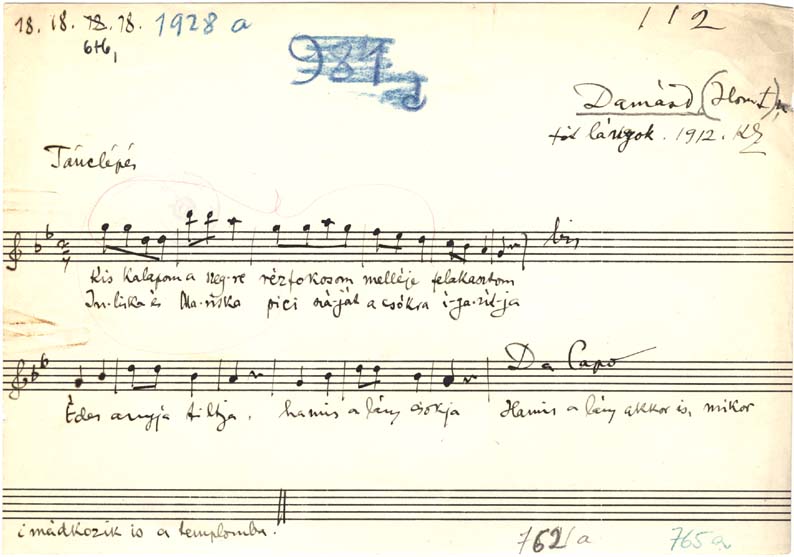 18. 18. 18. 18. 1928 a
6+6,
112
981
Damásd (Hont),
tót lányok. 1912.
Tánclépés
2
4
bis
Kis kalapom a szeg-re rézfokosom melléje felakasztom
Ju-liska és Ma-riska pici szá-ját a csókra i-ga-zít-ja
Da Capo
Édes anyja tiltja, hamis a lány csókja Hamis a lány akkor is, mikor
imádkozik is a templomba.
762/a
765a